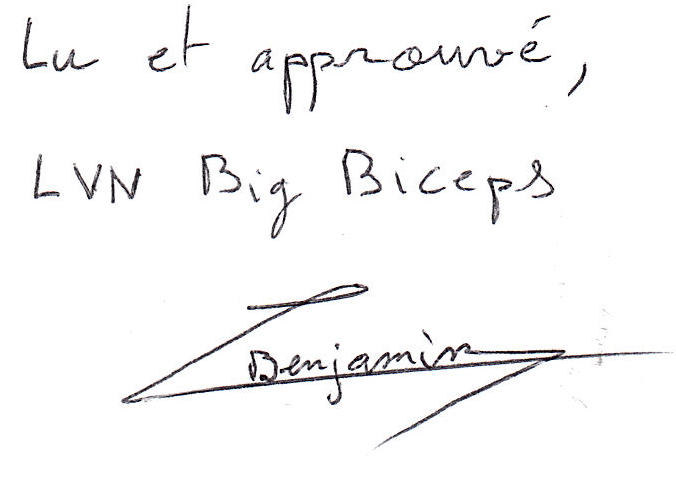 Lu et approuvé,
LVN Big Biceps
Benjamin